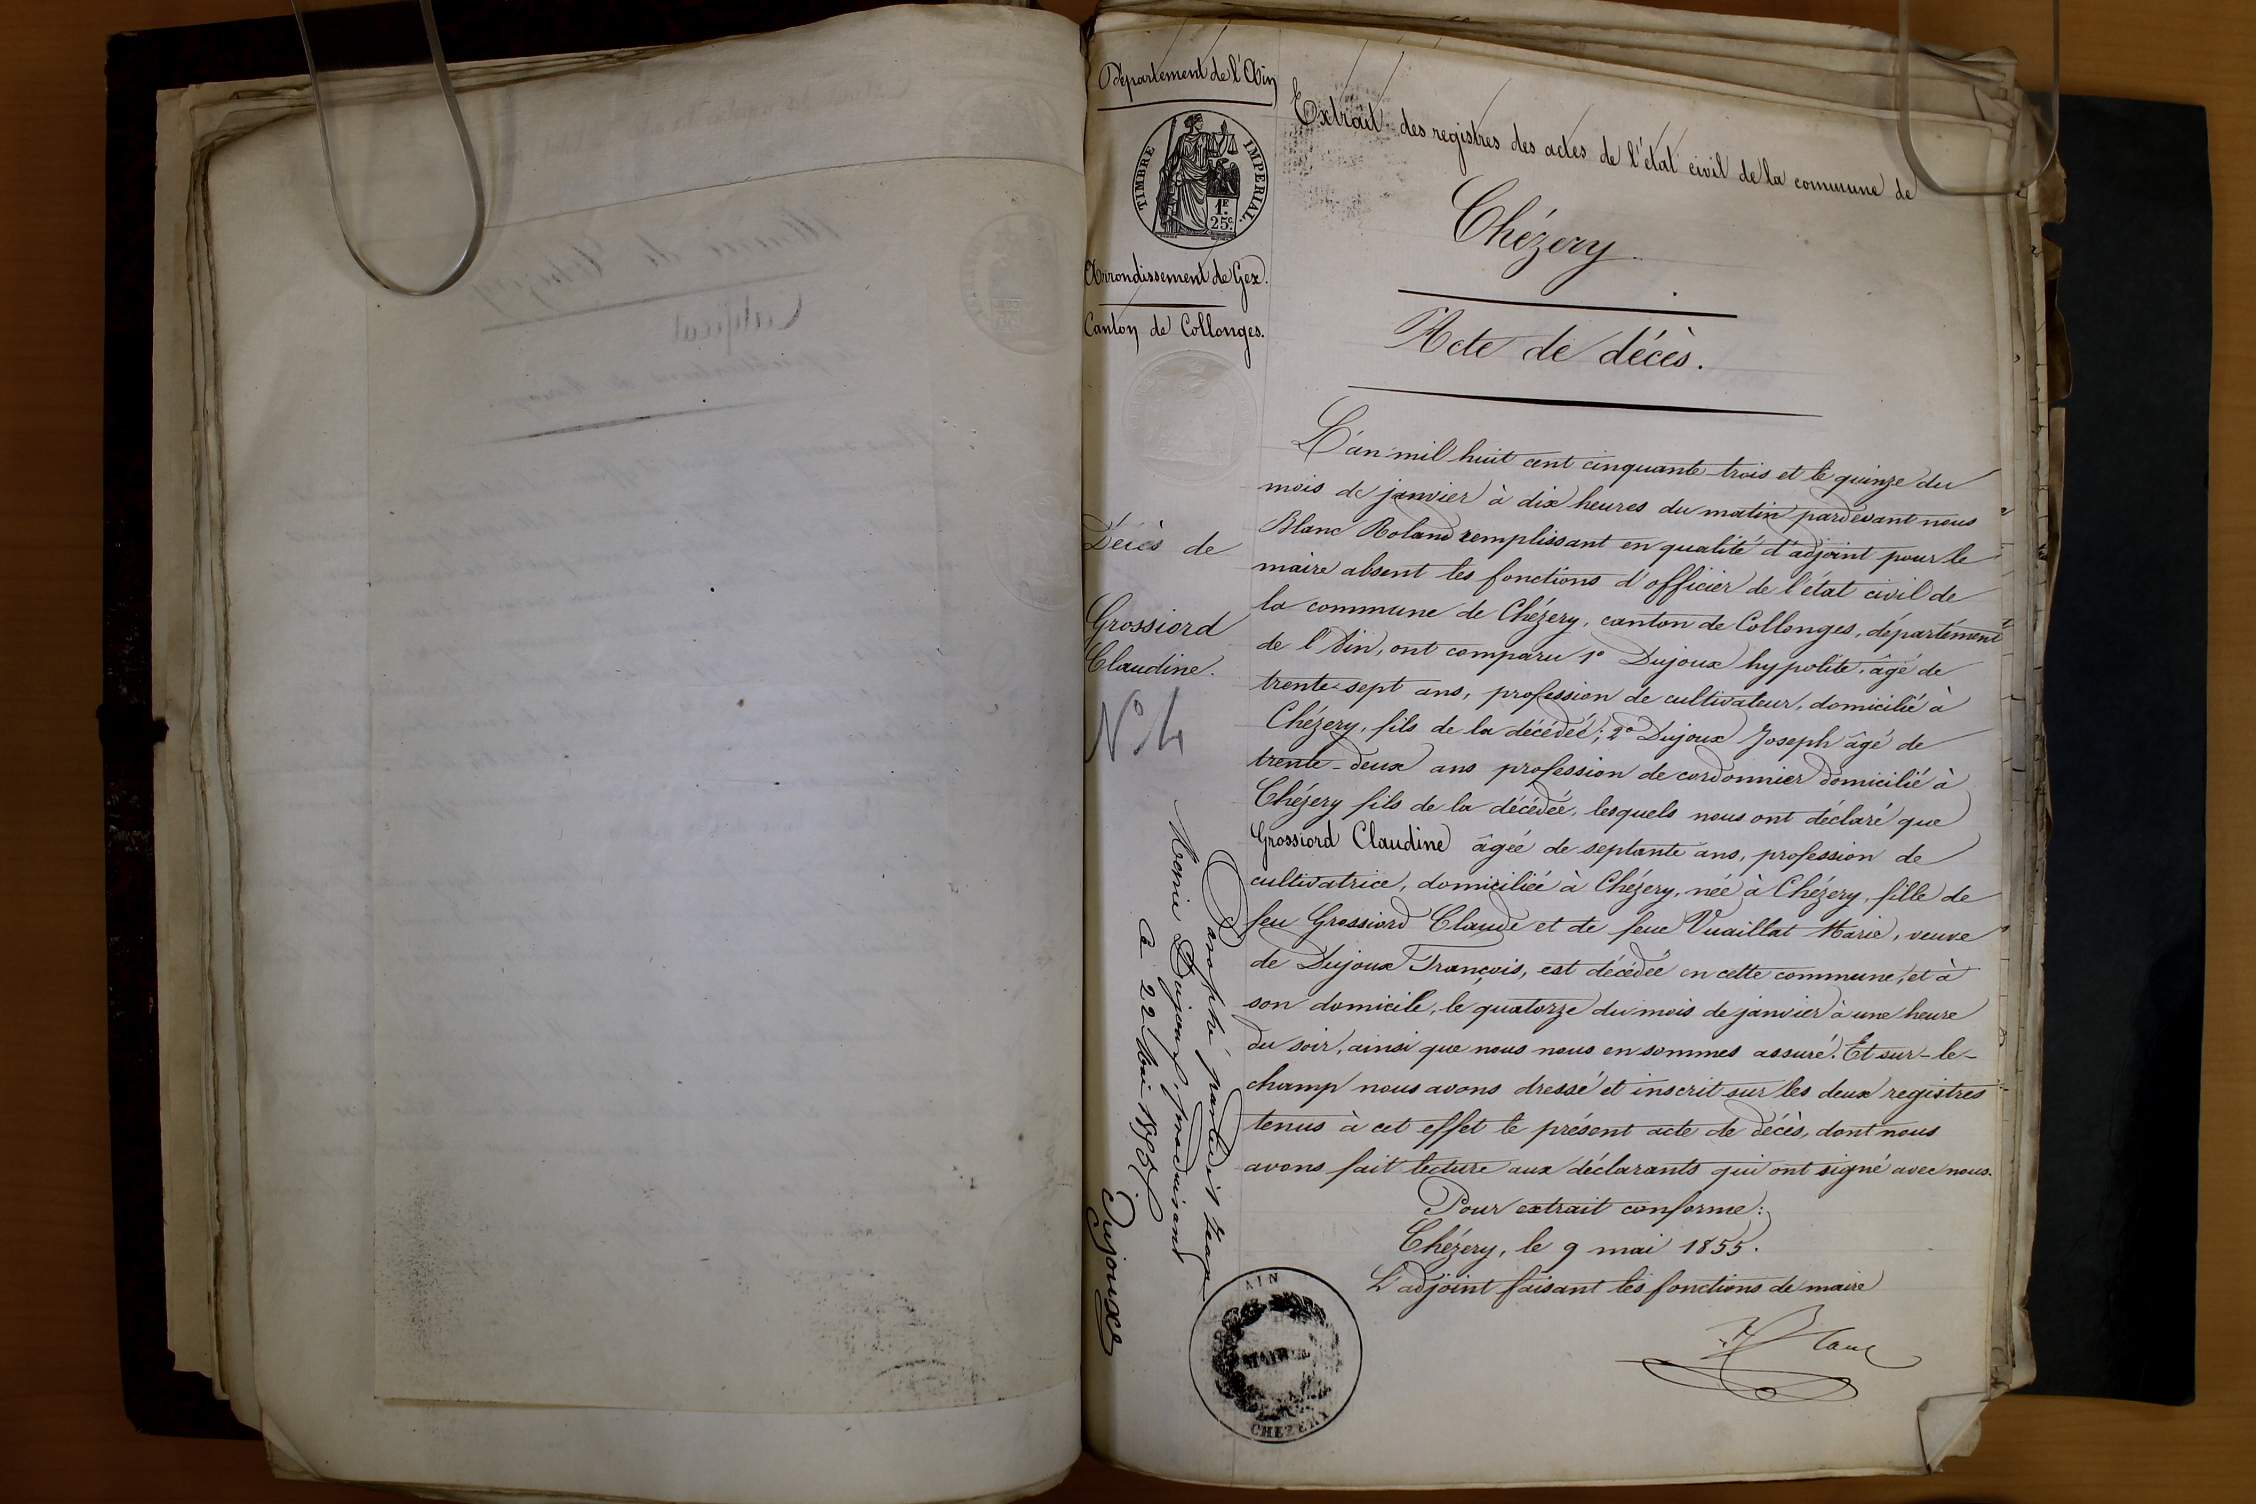 Département de l'Ain
TIMBRE IMPERIAL.
1F
25c.
Arrondissement de Gex.
Canton de Collonges.
Extrait des registres des actes de l'état civil de la commune de
Chézery.
Acte de décès.
Décès de
Grossiord
Claudine.
N° 4
L'an mil huit cent cinquante-trois et le quinze du
mois de janvier à dix heures du matin pardevant nous
Blanc Roland remplissant en qualité d'adjoint pour le
maire absent les fonctions d'officier de l'état civil de
la commune de Chézery, canton de Collonges, département
de l'Ain, ont comparu 1° Dujoux hypolite, âgé de
trente-sept ans, profession de cultivateur, domicilié à
Chézery, fils de la décédée; 2° Dujoux Joseph âgé de
trente-deux ans profession de cordonnier domicilié à
Chézery fils de la décédée, lesquels nous ont déclaré que
Grossiord Claudine âgée de septante ans, profession de
cultivatrice, domiciliée à Chézery, née à Chézery, fille de
feu Grossiord Claude et de feue Vuaillat Marie, veuve
de Dujoux François, est décédée en cette commune, et à
son domicile, le quatorze du mois de janvier à une heure
du soir, ainsi que nous nous en sommes assuré. Et sur-le-
champ nous avons dressé et inscrit sur les deux registres
tenus à cet effet le présent acte de décès, dont nous
avons fait lecture aux déclarants qui ont signé avec nous.
Pour extrait conforme:
Chézery, le 9 mai 1855.
L'adjoint faisant les fonctions de maire
Blanc
Paraphé par ledit Jean
Marie Dujoux, produisant
Ce 22 Mai 1855
Dujoux
AIN
MAIRIE
CHEZERY
Mairie de Chézery
Certificat